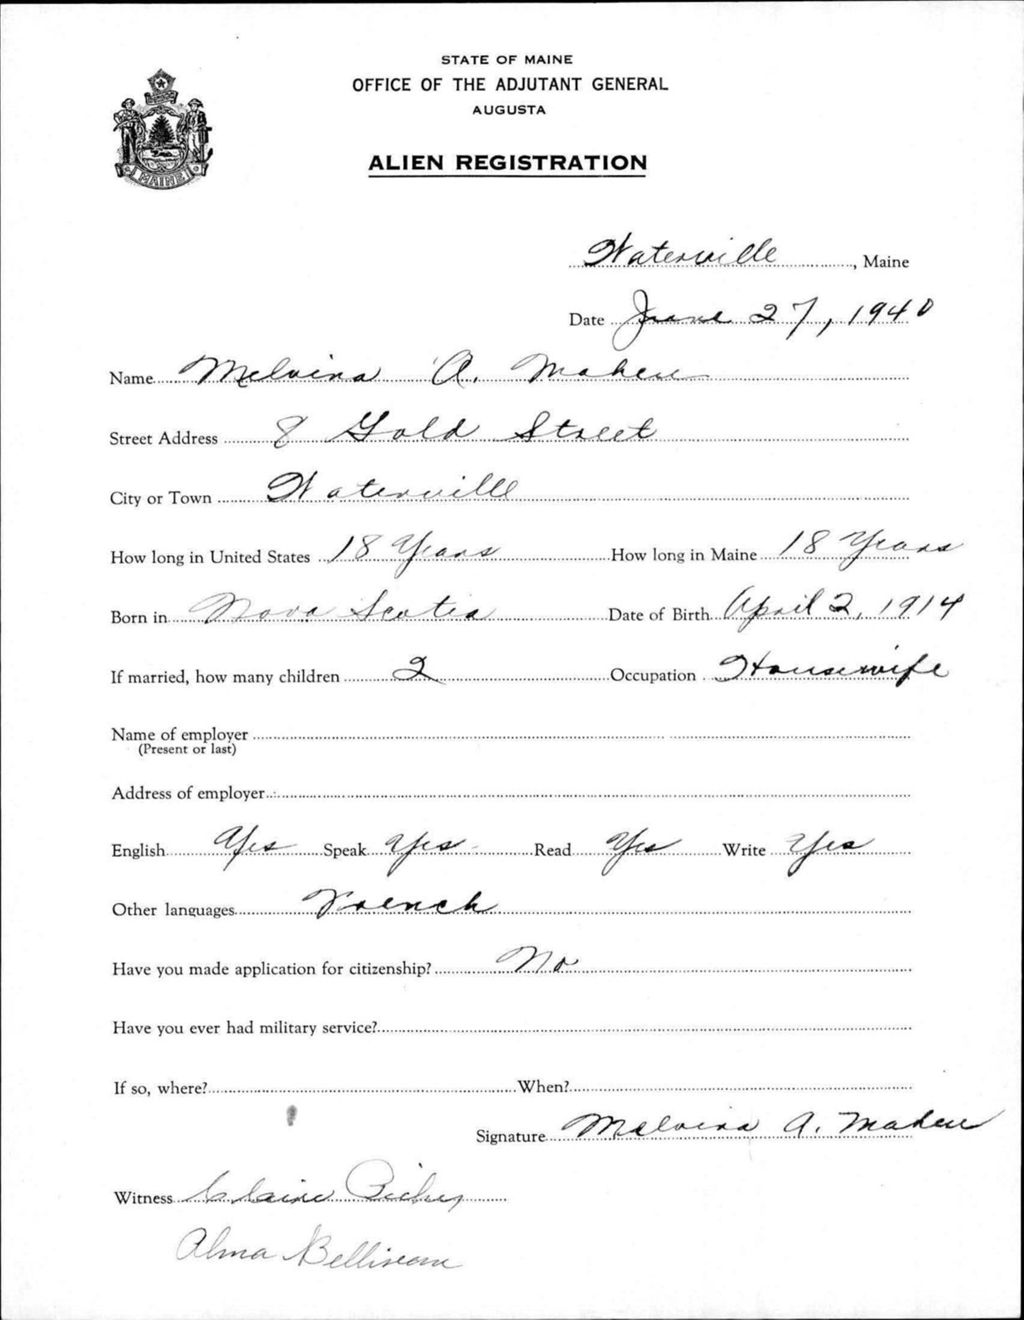 STATE OF MAINE
OFFICE OF THE ADJUTANT GENERAL
AUGUSTA
ALIEN REGISTRATION
MAINE
Waterville, Maine
Date June 27, 1940
Name Melvina A. Maheu
Street Address 8 Gold Street
City or Town Waterville
How long in United States 18 Years How long in Maine 18 Years
Born in Nova Scotia Date of Birth April 2, 1914
If married, how many children 2 Occupation Housewife
Name of employer
(Present or last)
Address of employer
English Yes Speak Yes Read Yes Write Yes
Other languages French
Have you made application for citizenship? No
Have you ever had military service?
If so, where? When?
Signature Melvina A. Maheu
Witness Claire
Alma